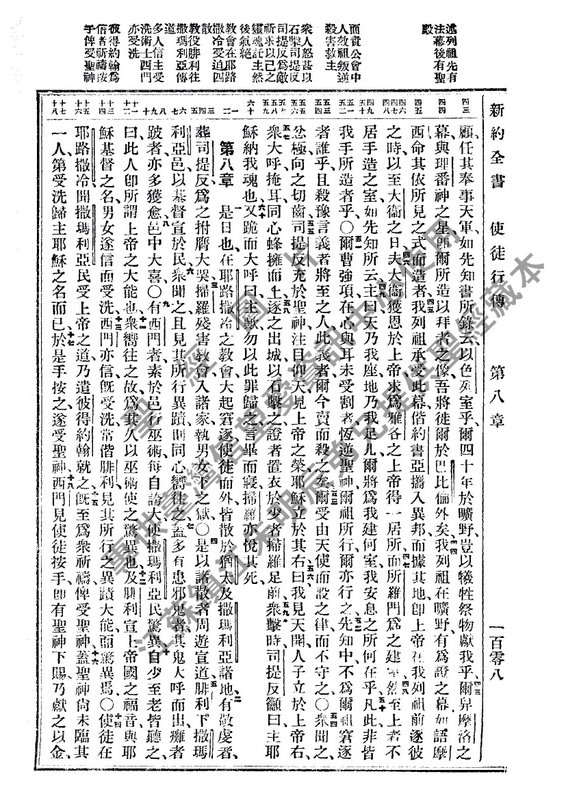 新約全書 使徒行傳 第八章 一百零八
述列祖先有
法幕後有聖
殿
顧任其奉事天軍如先知書所錄云以色列室乎爾四十年於曠野豈以犧牲祭物獻我乎爾舁摩洛之
幕與理番神之星卽爾所造以拜者之像吾將徙爾於巴比倫外矣我列祖在曠野有爲證之幕如語摩
西命其依所見之式而造者我列祖承受此幕偕約書亞攜入異邦而據其地卽上帝在我列祖前逐彼
之時以至大衛之日夫大衛獲恩於上帝求爲雅各之上帝得一居所而所羅門爲之建室然至上者不
居手造之室如先知所云主曰天乃我座地乃我足几爾將爲我建何室我安息之所何在乎凡此非皆
而責公會中
人效祖叛逆
殺害救主
我手所造者乎○爾曹強項在心與耳未受割者恆逆聖神爾祖所行爾亦行之先知中不爲爾祖窘逐
者誰乎且殺豫言義者將至之人此義者爾今賣而殺之矣爾受由天使而設之律而不守之○衆聞之
衆人怒甚以
石擊司提反
司提反爲敵
祈求以己之
靈魂託主然
後氣絕
忿極向之切齒司提反充於聖神注目仰天見上帝之榮耶穌立於其右曰我見天開人子立於上帝右
衆大呼掩耳同心蜂擁而上逐之出城以石擊之證者置衣於少者掃羅足前衆擊時司提反籲曰主耶
穌納我魂也又跪而大呼曰主歟勿以此罪歸之言畢而寢掃羅亦悅其死
教會在耶路
撒冷受迫四
散腓利往
撒瑪利亞傳
道
第八章 是日也在耶路撒冷之教會大起窘逐使徒而外皆散於猶太及撒瑪利亞諸地有敬虔者
葬司提反爲之拊膺大哭掃羅殘害教會入諸家執男女下之獄○是以諸散者周遊宣道腓利下撒瑪
利亞邑以基督宣於民衆聞之且見其所行異蹟則同心嚮往之蓋多有患邪鬼者其鬼大呼而出癱者
多人信主受
洗術士西門
亦受洗
跛者亦多獲愈邑中大喜○有西門者素於邑行巫術每自詡大使撒瑪利亞民驚異自少至老皆聽之
曰此人卽所謂上帝之大能也衆嚮往之故爲其久以巫術使之驚異也及腓利宣上帝國之福音與耶
穌基督之名男女遂信而受洗西門亦信旣受洗常偕腓利見其所行之異蹟大能亟驚異焉○使徒在
彼得約翰爲
信者祈禱按
手俾受聖神
耶路撒冷聞撒瑪利亞民受上帝之道乃遣彼得約翰就之旣至爲衆祈禱俾受聖神蓋聖神尚未臨其
一人第受洗歸主耶穌之名而已於是手按之遂受聖神西門見使徒按手卽有聖神下賜乃獻之以金